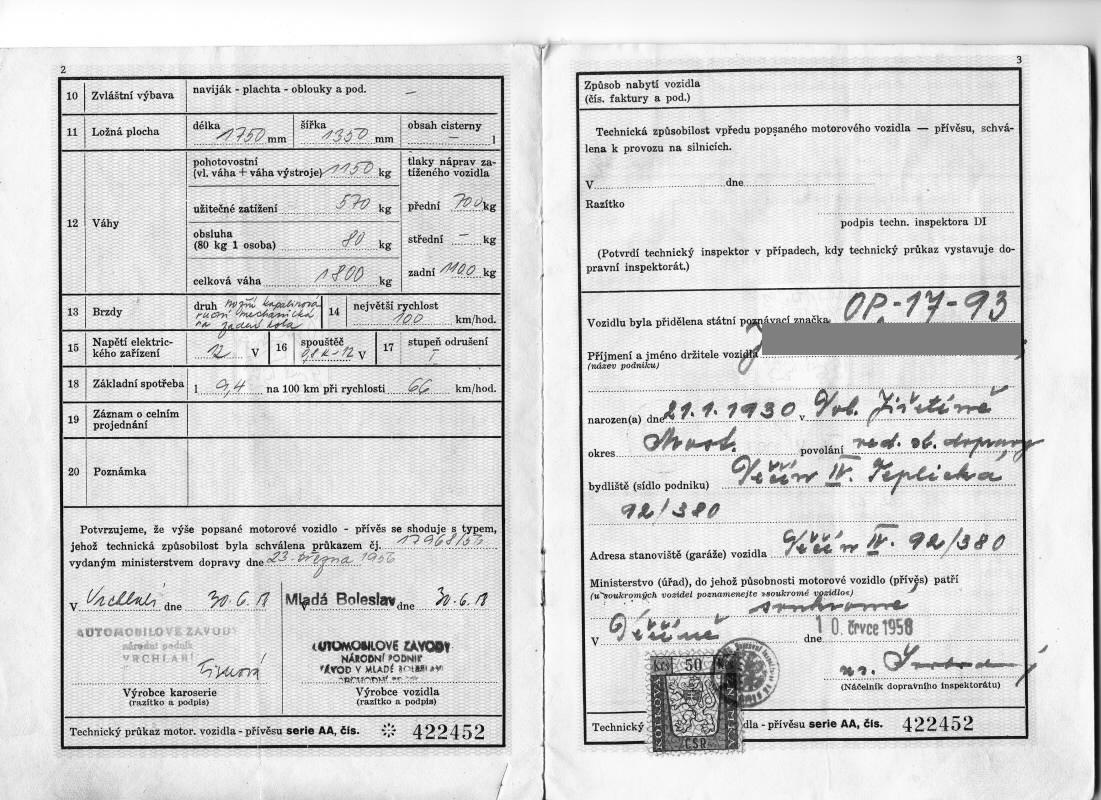 2
10 Zvláštní výbava naviják - plachta - oblouky a pod. —
11 Ložná plocha délka 1750 mm šířka 1350 mm obsah cisterny — l
12 Váhy
pohotovostní (vl. váha + váha výstroje) 1150 kg
užitečné zatížení 570 kg
obsluha (80 kg 1 osoba) 80 kg
celková váha 1800 kg
tlaky náprav zatíženého vozidla
přední 700 kg
střední — kg
zadní 1100 kg
13 Brzdy druh nožní kapalinová
ruční mechanická
na zadní kola
14 největší rychlost 100 km/hod.
15 Napětí elektrického zařízení 12 V 16 spouštěč 0,8 k-12 V 17 stupeň odrušení I
18 Základní spotřeba l 9,4 na 100 km při rychlosti 66 km/hod.
19 Záznam o celním projednání
20 Poznámka
Potvrzujeme, že výše popsané motorové vozidlo - přívěs se shoduje s typem,
jehož technická způsobilost byla schválena průkazem čj. 17968/56
vydaným ministerstvem dopravy dne 23. března 1956
V Vrchlabí dne 30.6.58
AUTOMOBILOVÉ ZÁVODY
národní podnik
VRCHLABÍ
Výrobce karoserie
(razítko a podpis)
V Mladá Boleslav dne 30.6.58
AUTOMOBILOVÉ ZÁVODY
NÁRODNÍ PODNIK
ZÁVOD V MLADÉ BOLESLAVI
Výrobce vozidla
(razítko a podpis)
Technický průkaz motor. vozidla - přívěsu serie AA, čís. 422452
3
Způsob nabytí vozidla
(čís. faktury a pod.)
Technická způsobilost vpředu popsaného motorového vozidla — přívěsu, schvá-
lena k provozu na silnicích.
V dne
Razítko
podpis techn. inspektora DI
(Potvrdí technický inspektor v případech, kdy technický průkaz vystavuje do-
pravní inspektorát.)
Vozidlu byla přidělena státní poznávací značka OP-17-93
Příjmení a jméno držitele vozidla
(název podniku)
narozen(a) dne 21.1.1930 v Hor. Jiřetíně
okres Most. povolání ved. st. dopravy
bydliště (sídlo podniku) Děčín IV. Teplická
92/380
Adresa stanoviště (garáže) vozidla Děčín IV. 92/380
Ministerstvo (úřad), do jehož působnosti motorové vozidlo (přívěs) patří
(u soukromých vozidel poznamenejte »soukromé vozidlo«)
soukromé
V Děčíně dne 10. črvce 1958
(Náčelník dopravního inspektorátu)
Kčs 50
KOLKOVÁ ZNÁMKA
ČSR
Technický vozidla - přívěsu serie AA, čís. 422452